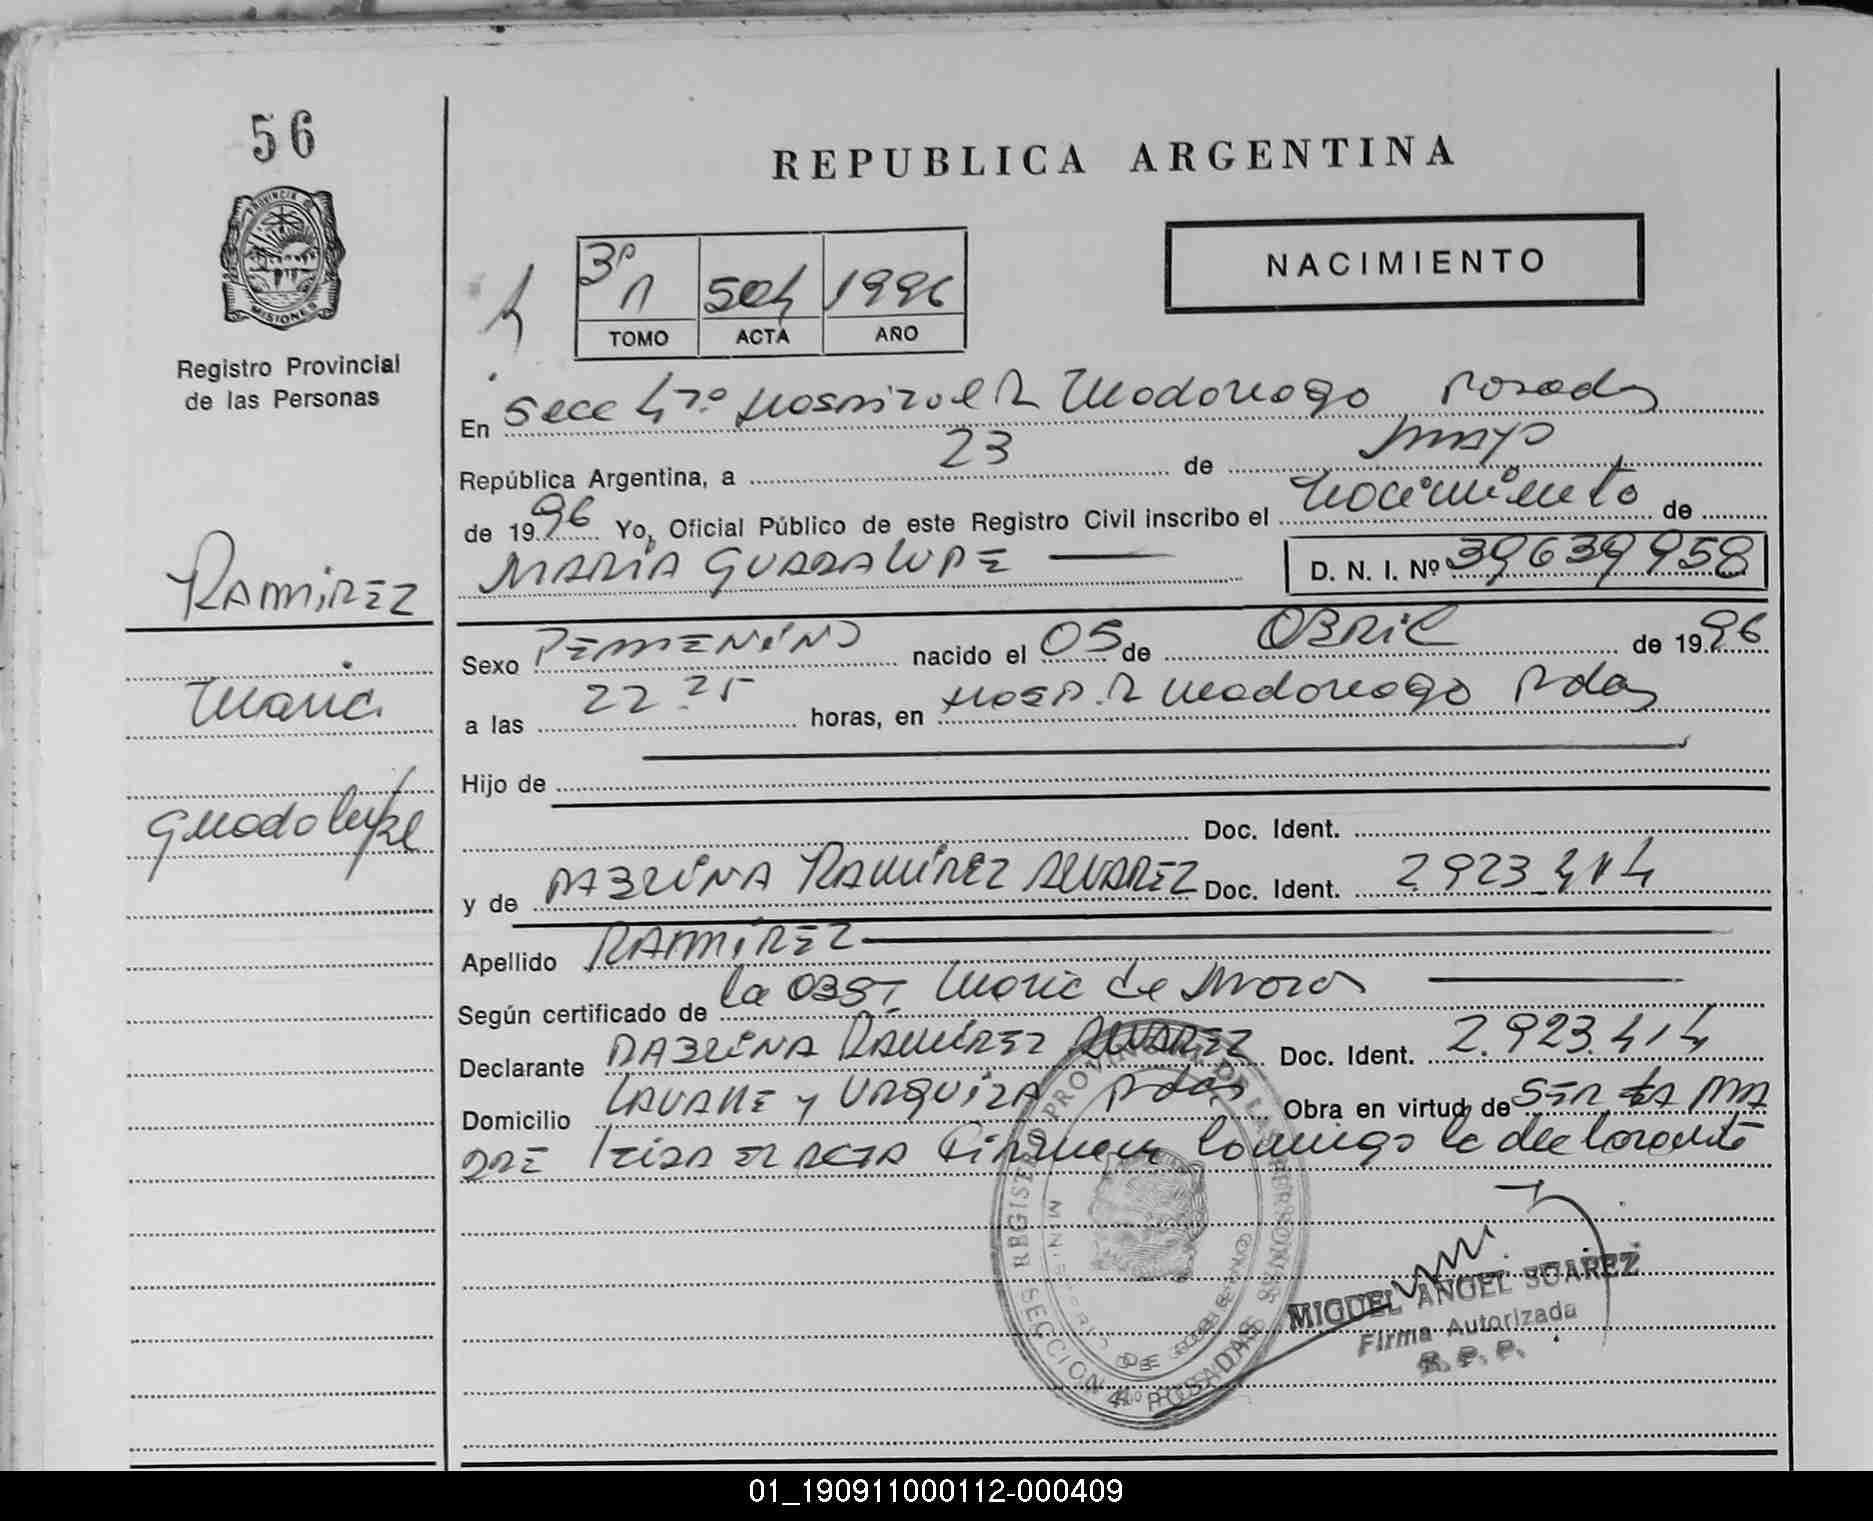 56
REPUBLICA ARGENTINA
PROVINCIA DE
MISIONES
NACIMIENTO
3º 504 1996
TOMO ACTA AÑO
Registro Provincial
de las Personas
En Secc 4ta. Hospital R Madariaga Posadas
República Argentina, a 23 de mayo
de 1996 Yo, Oficial Público de este Registro Civil inscribo el Nacimiento de
MARIA GUADALUPE D. N. I. Nº 39639958
RAMIREZ
Sexo FEMENINO nacido el 05 de ABRIL de 1996
Maria
a las 22.25 horas, en Hosp. R Madariaga Pdas
Hijo de
Guadalupe
Doc. Ident.
y de RAMIREZ ALVAREZ Doc. Ident. 2923414
Apellido RAMIREZ
Según certificado de la OBST Maria de
Declarante RAMIREZ ALVAREZ Doc. Ident. 2.923.414
Domicilio LAVALLE y URQUIZA Pdas Obra en virtud de SER LA MA
DRE ACTA Firman conmigo la declarante
REGISTRO PROVINCIAL DE LAS PERSONAS
SECCION 4ta POSADAS
MIGUEL ANGEL SUAREZ
Firma Autorizada
R. P. P.
01_190911000112-000409